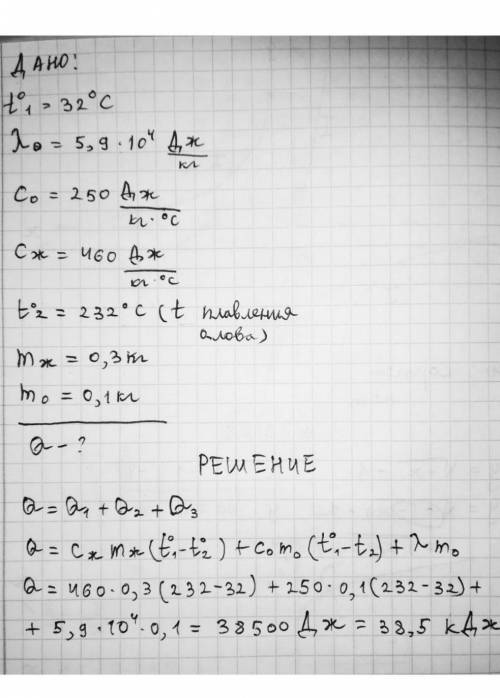 ДАНО:
t°₁ = 32°C
λ₀ = 5,9·10⁴ Дж/кг
C₀ = 250 Дж/кг·°C
Cж = 460 Дж/кг·°C
t°₂ = 232°C (t плавления
олова)
mж = 0,3 кг
m₀ = 0,1 кг
Q - ?
РЕШЕНИЕ
Q = Q₁ + Q₂ + Q₃
Q = Cж mж (t°₁-t°₂) + C₀ m₀ (t°₁-t₂) + λ m₀
Q = 460·0,3 (232-32) + 250·0,1 (232-32) +
+ 5,9·10⁴·0,1 = 38500 Дж = 38,5 кДж